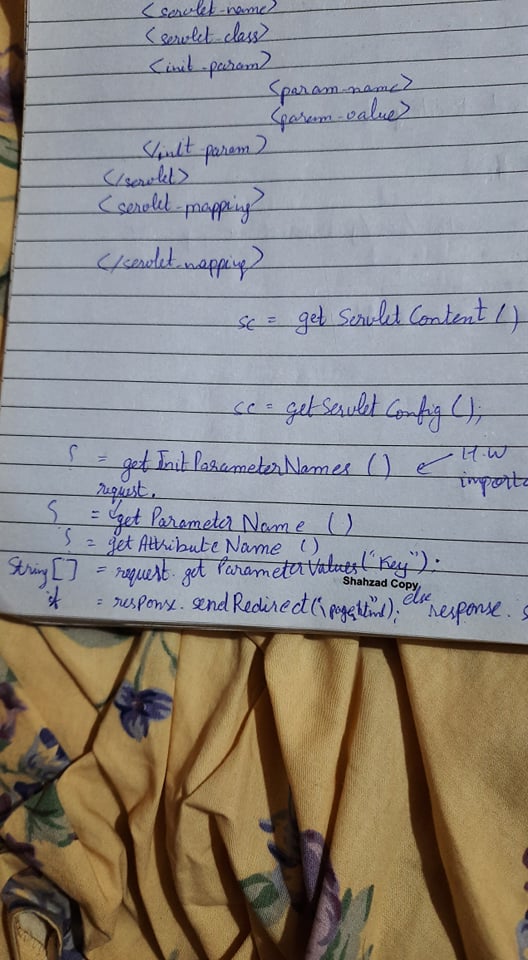 <servlet-name>
<servlet-class>
<init-param>
<param-name>
<param-value>
</init-param>
</servlet>
<servlet-mapping>
</servlet-mapping>
sc = get Servlet Content ()
sc = getServlet Config ();
S = get InitParameterNames () ← H.W
importa
request.
S = get Parameter Name ()
S = get Attribute Name ()
String [] = request. get ParameterValues ("Key");
Shahzad Copy
= response. sendRedirect("\page.html"); else response. s